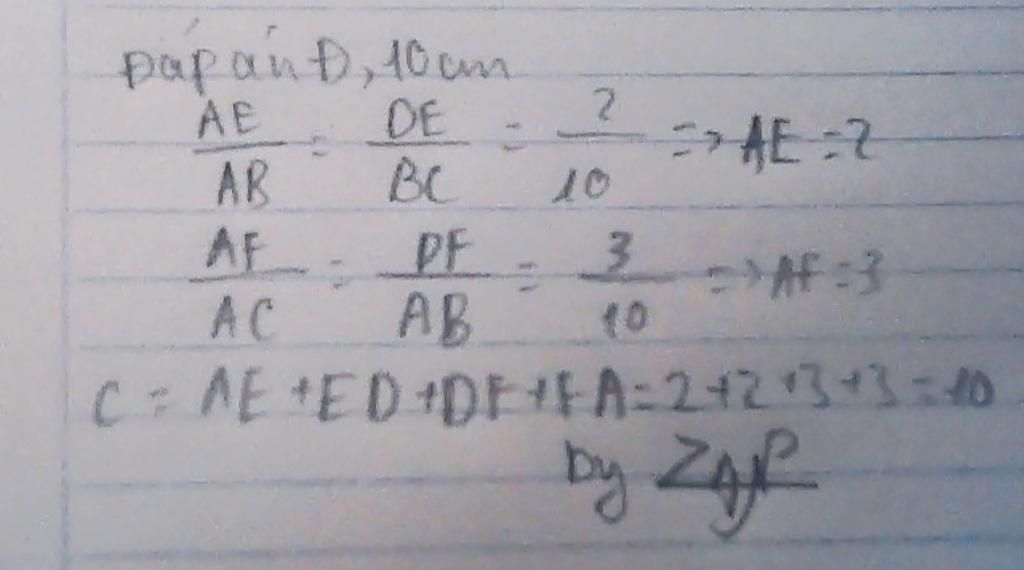 Đáp án Đ, 10cm
AE/AB = DE/BC = 2/10 => AE = 2
AF/AC = DF/AB = 3/10 => AF = 3
C = AE + ED + DF + FA = 2 + 2 + 3 + 3 = 10
by